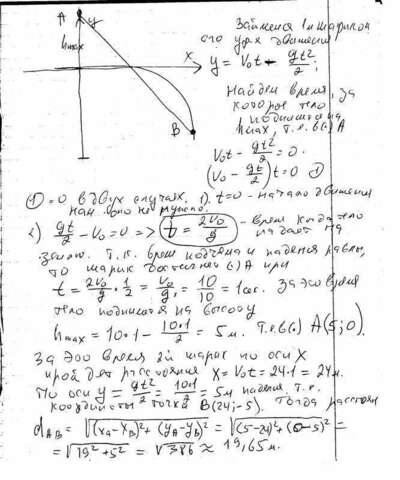 A y
Займемся 1м шариком
его ур-е движения
hmax
X
y = V₀t - gt²/2;
Найдем время, за
которое тело
поднимется на
hmax, т.е. в(·) A
B
V₀t - gt²/2 = 0.
(V₀ - gt/2)t = 0 ①
① = 0 в двух случаях. 1). t=0 - начало движения
нам это не нужно.
2) gt/2 - V₀ = 0 => t = 2V₀/g - время когда тело
падает на
землю. Т.к. время подъема и падения равны,
то шарик достигнет (·) A при
t = 2V₀/g · 1/2 = V₀/g = 10/10 = 1сек. За это время
тело поднимется на высоту
hmax = 10·1 - 10·1/2 = 5м. Т.е. (·) A(5;0).
За это время 2й шарик по оси X
пройдет расстояния X = V₀t = 24·1 = 24м.
По оси y = gt²/2 = 10·1/2 = 5м падения, т.е.
координаты точки B(24;-5). Тогда расстоян
dAB = √(xA-xB)²+(yA-yB)² = √(5-24)²+(0-5)² =
= √19²+5² = √386 ≈ 19,65м.